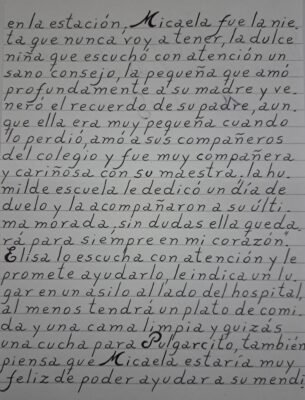 en la estación, Micaela fue la nie_
ta que nunca voy a tener, la dulce
niña que escuchó con atención un
sano consejo, la pequeña que amó
profundamente a su madre y ve_
neró el recuerdo de su padre, aun_
que ella era muy pequeña cuando
lo perdió, amó a sus compañeros
del colegio y fue muy compañera
y cariñosa con su maestra. la hu_
milde escuela le dedicó un día de
duelo y la acompañaron a su últi_
ma morada, sin dudas ella queda_
rá para siempre en mi corazón."
Elisa lo escucha con atención y le
promete ayudarlo, le indica un lu_
gar en un asilo al lado del hospital,
al menos tendrá un plato de comi_
da y una cama limpia y quizás
una cucha para Pulgarcito, también
piensa que Micaela estaría muy
feliz de poder ayudar a su mendi_